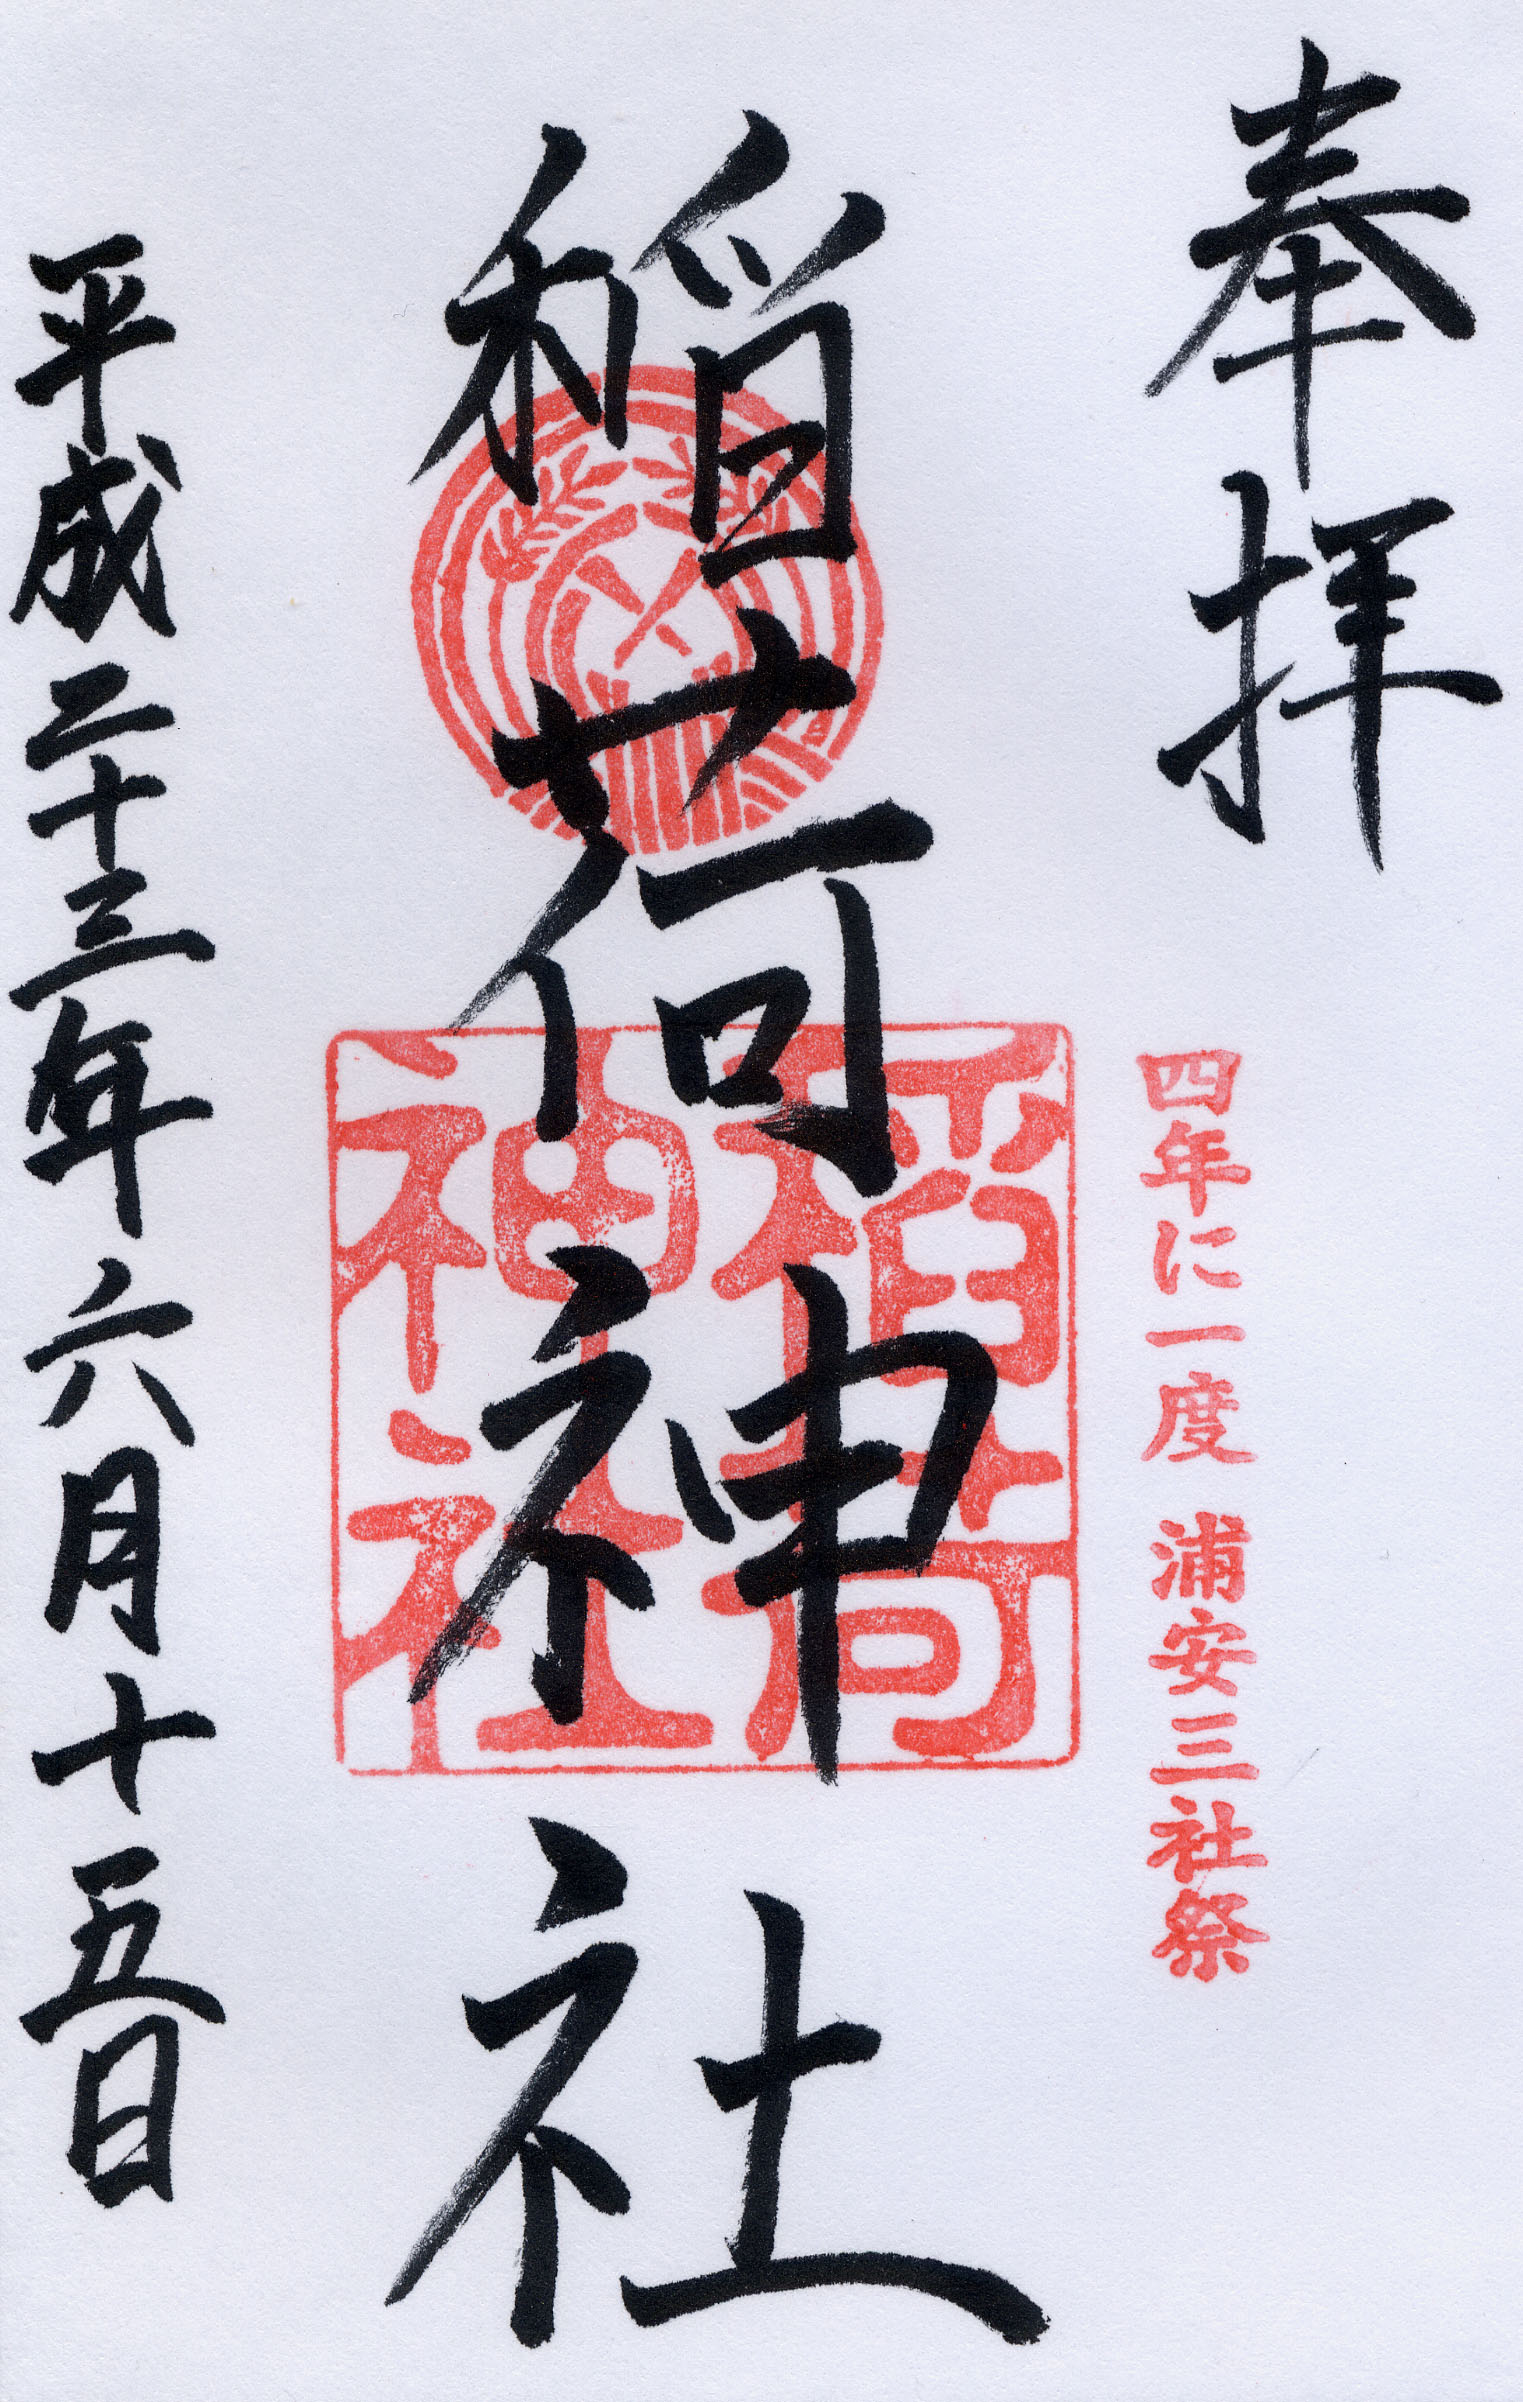 奉拝
四年に一度 浦安三社祭
稲荷神社
稲荷神社
平成二十三年六月十五日